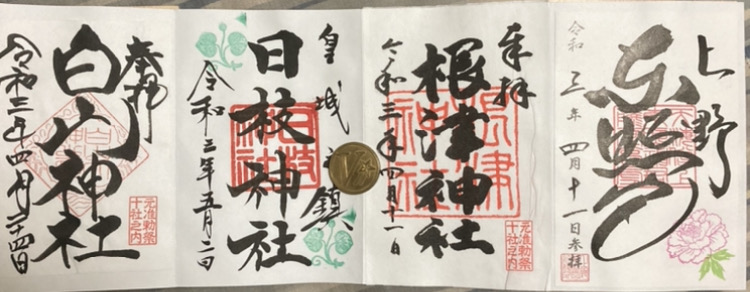 上野
東照宮
令和三年四月十一日参拝
奉拝
根津神社
根津神社
令和三年四月十一日
元准勅祭
十社之内
皇城之鎮
日枝神社
日枝神社
令和三年五月二日
奉拝
白山神社
令和三年四月二十四日
元准勅祭
十社之内